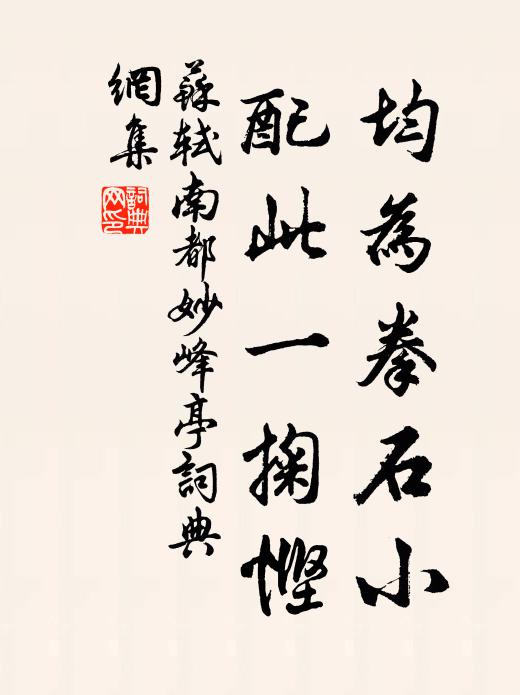 均為拳石小
配此一掬慳
蘇軾南都妙峰亭詞典
網集
詞典
网印